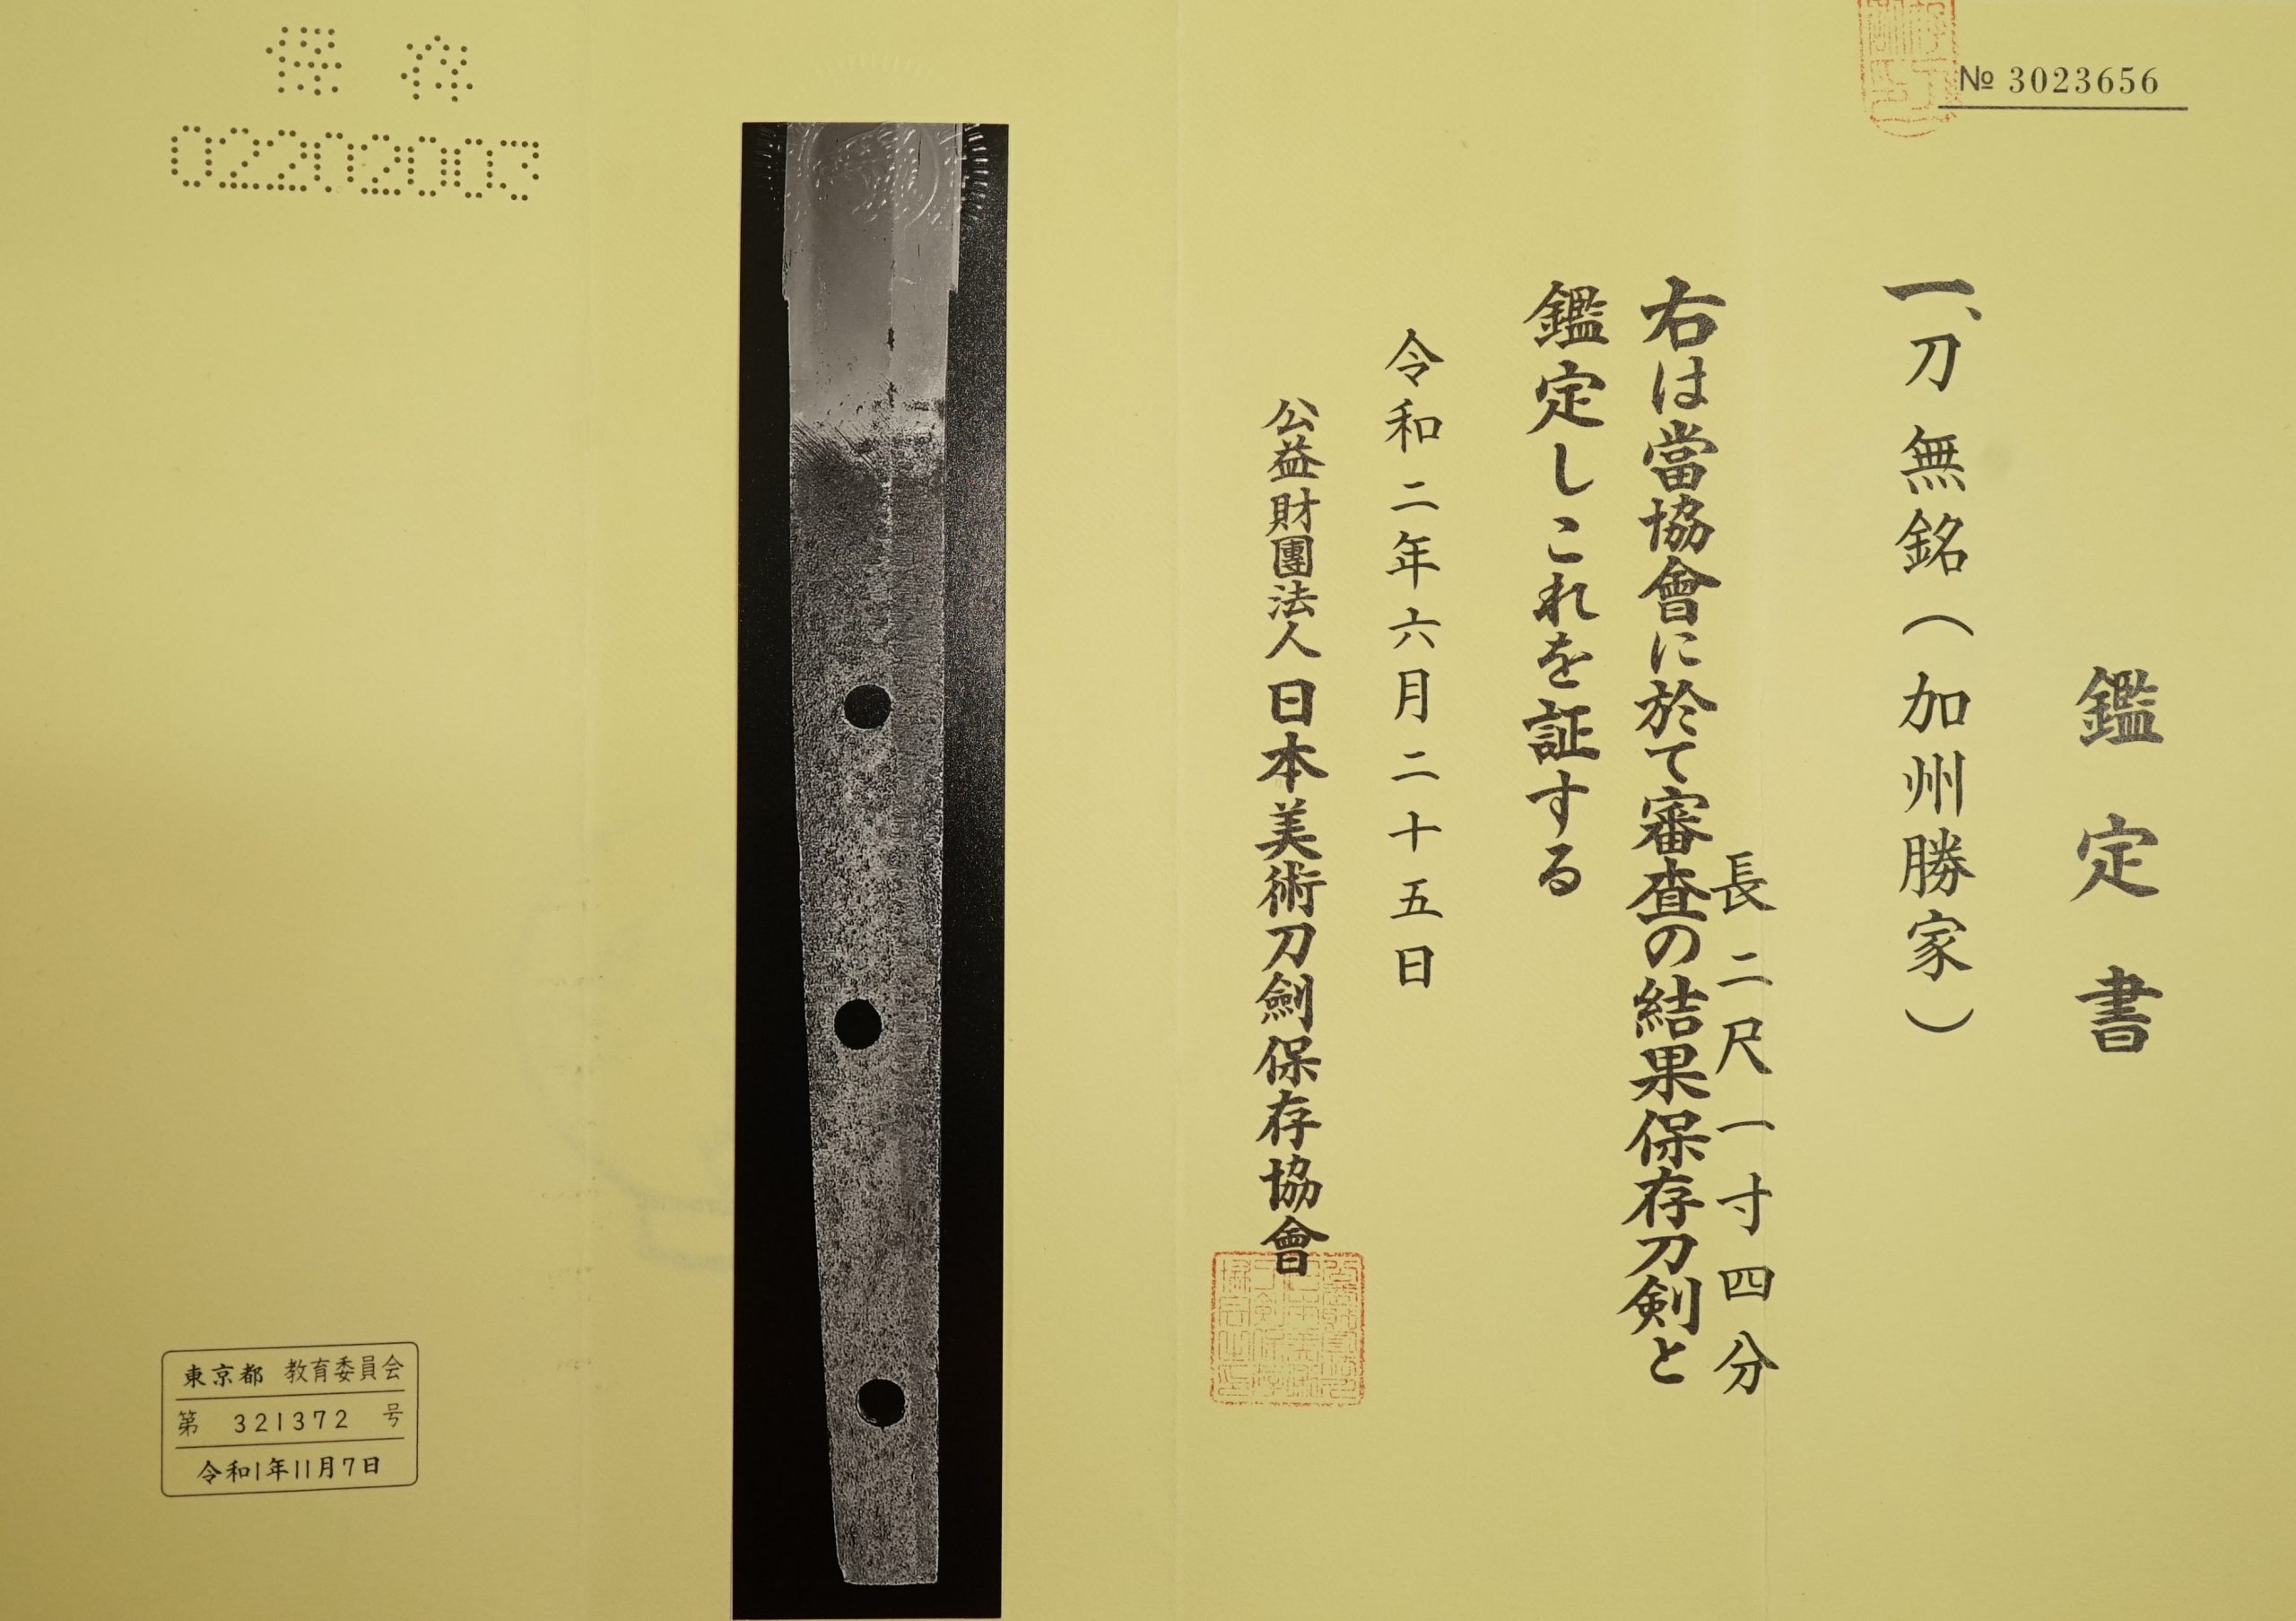 № 3023656
鑑定書
一、刀 無銘(加州勝家)
長二尺一寸四分
右は當協會に於て審査の結果保存刀剣と
鑑定しこれを証する
令和二年六月二十五日
公益財團法人 日本美術刀劍保存協會
保存
02202003
東京都 教育委員会
第 321372 号
令和1年11月7日